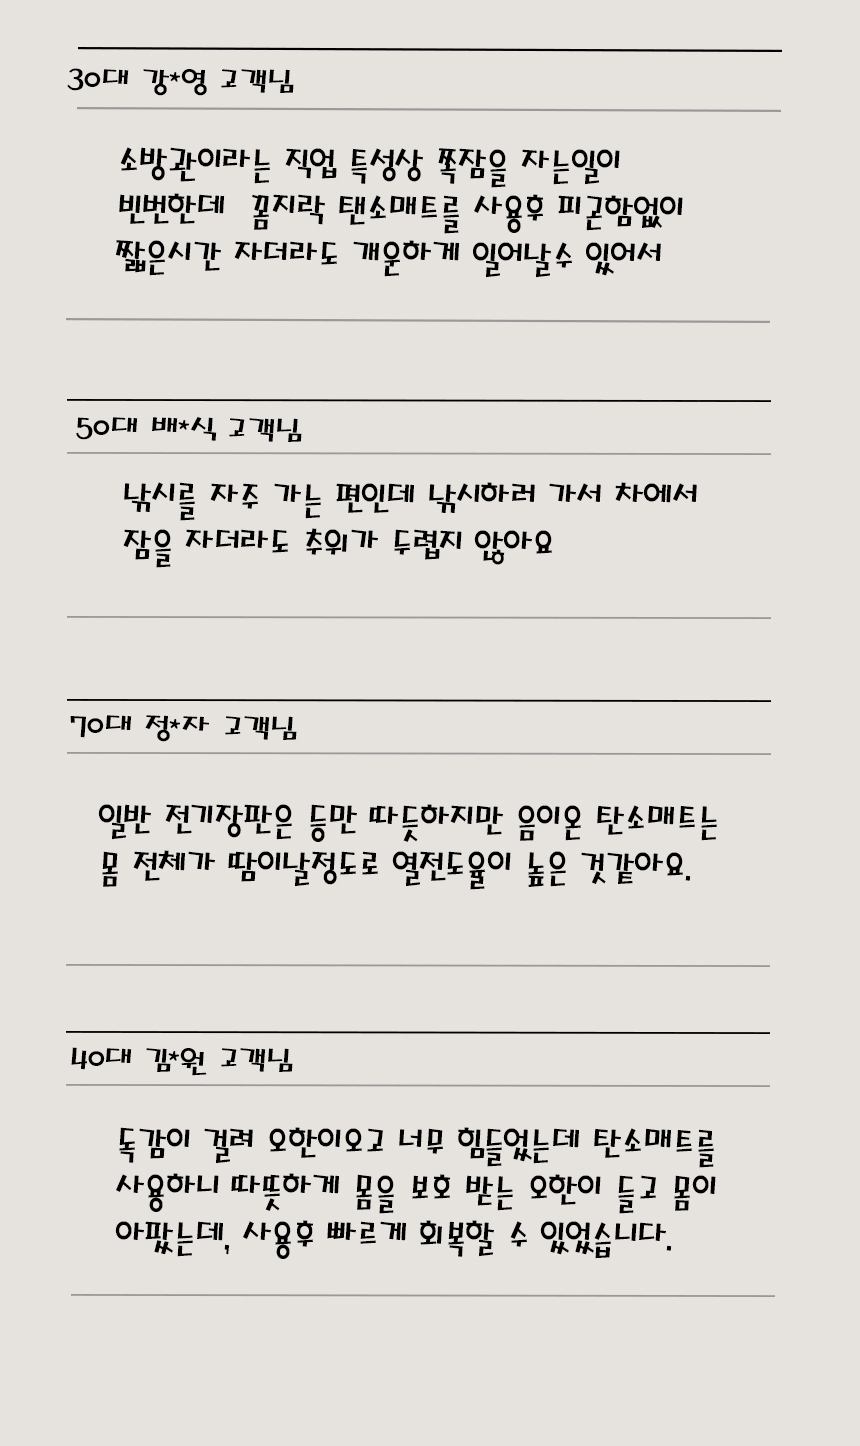 30대 강*영 고객님
소방관이라는 직업 특성상 쪽잠을 자는일이
빈번한데 꼼지락 탠소매트를 사용후 피곤함없이
짧은시간 자더라도 개운하게 일어날수 있어서
50대 배*식 고객님
낚시를 자주 가는 편인데 낚시하러 가서 차에서
잠을 자더라도 추위가 두렵지 않아요
70대 정*자 고객님
일반 전기장판은 등만 따듯하지만 음이온 탄소매트는
몸 전체가 땀이날정도로 열전도율이 높은 것같아요.
40대 김*원 고객님
독감이 걸려 오한이오고 너무 힘들었는데 탄소매트를
사용하니 따뜻하게 몸을 보호 받는 오한이 들고 몸이
아팠는데, 사용후 빠르게 회복할 수 있었습니다.